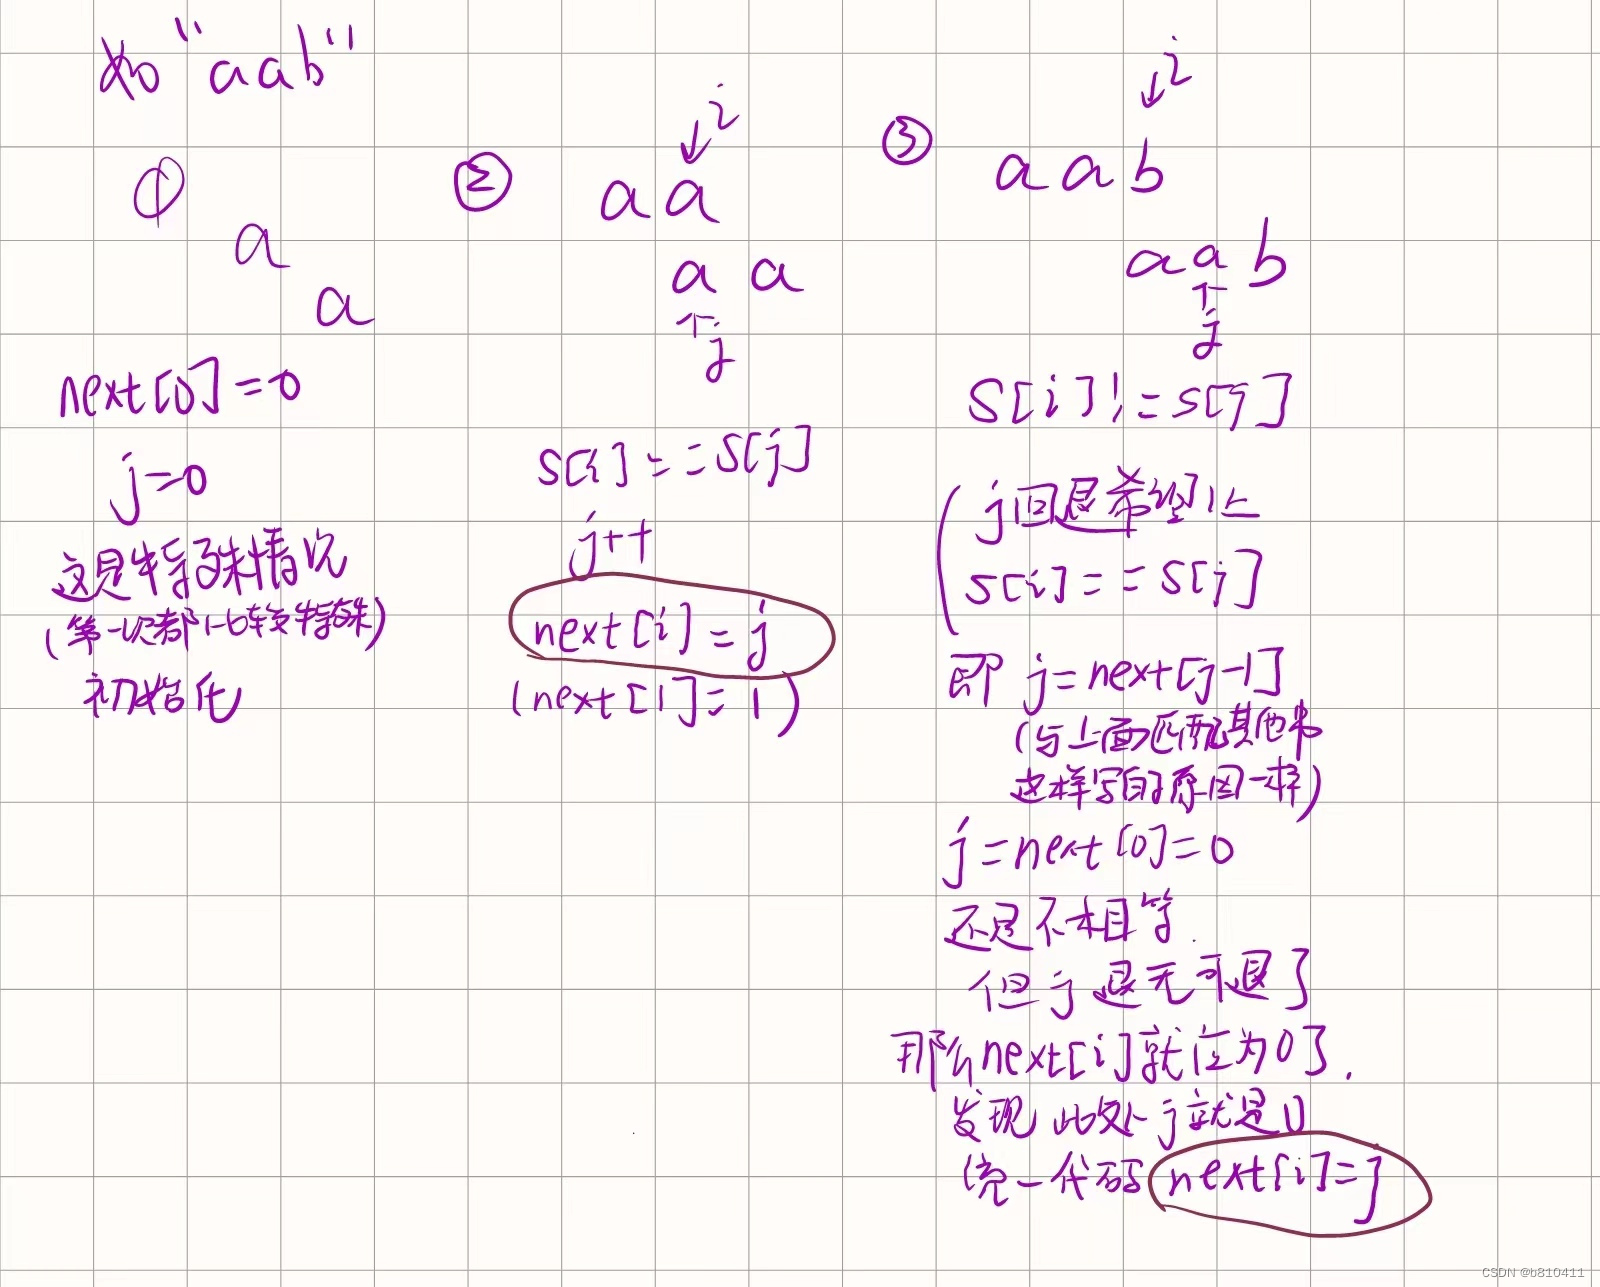 如 "aab"
①
a
a
next[0]=0
j=0
这是特殊情况
(第一次都比较特殊)
初始化
②
i
aa
a a
j
s[i]==s[j]
j++
next[i]=j
(next[1]=1)
③
i
aab
aab
j
S[i]!=s[j]
j回退希望让
s[i]==s[j]
即 j=next[j-1]
(与上面匹配其他串
这样写的原因一样)
j=next[0]=0
还是不相等
但j退无可退了
那么next[i]就应为0了.
发现此处j就是0
统一代码 next[i]=j
CSDN @b810411